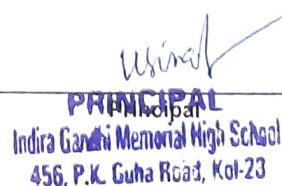 PRINCIPAL
Principal
Indira Gandhi Memorial High School
456, P.K. Guha Road, Kol-23